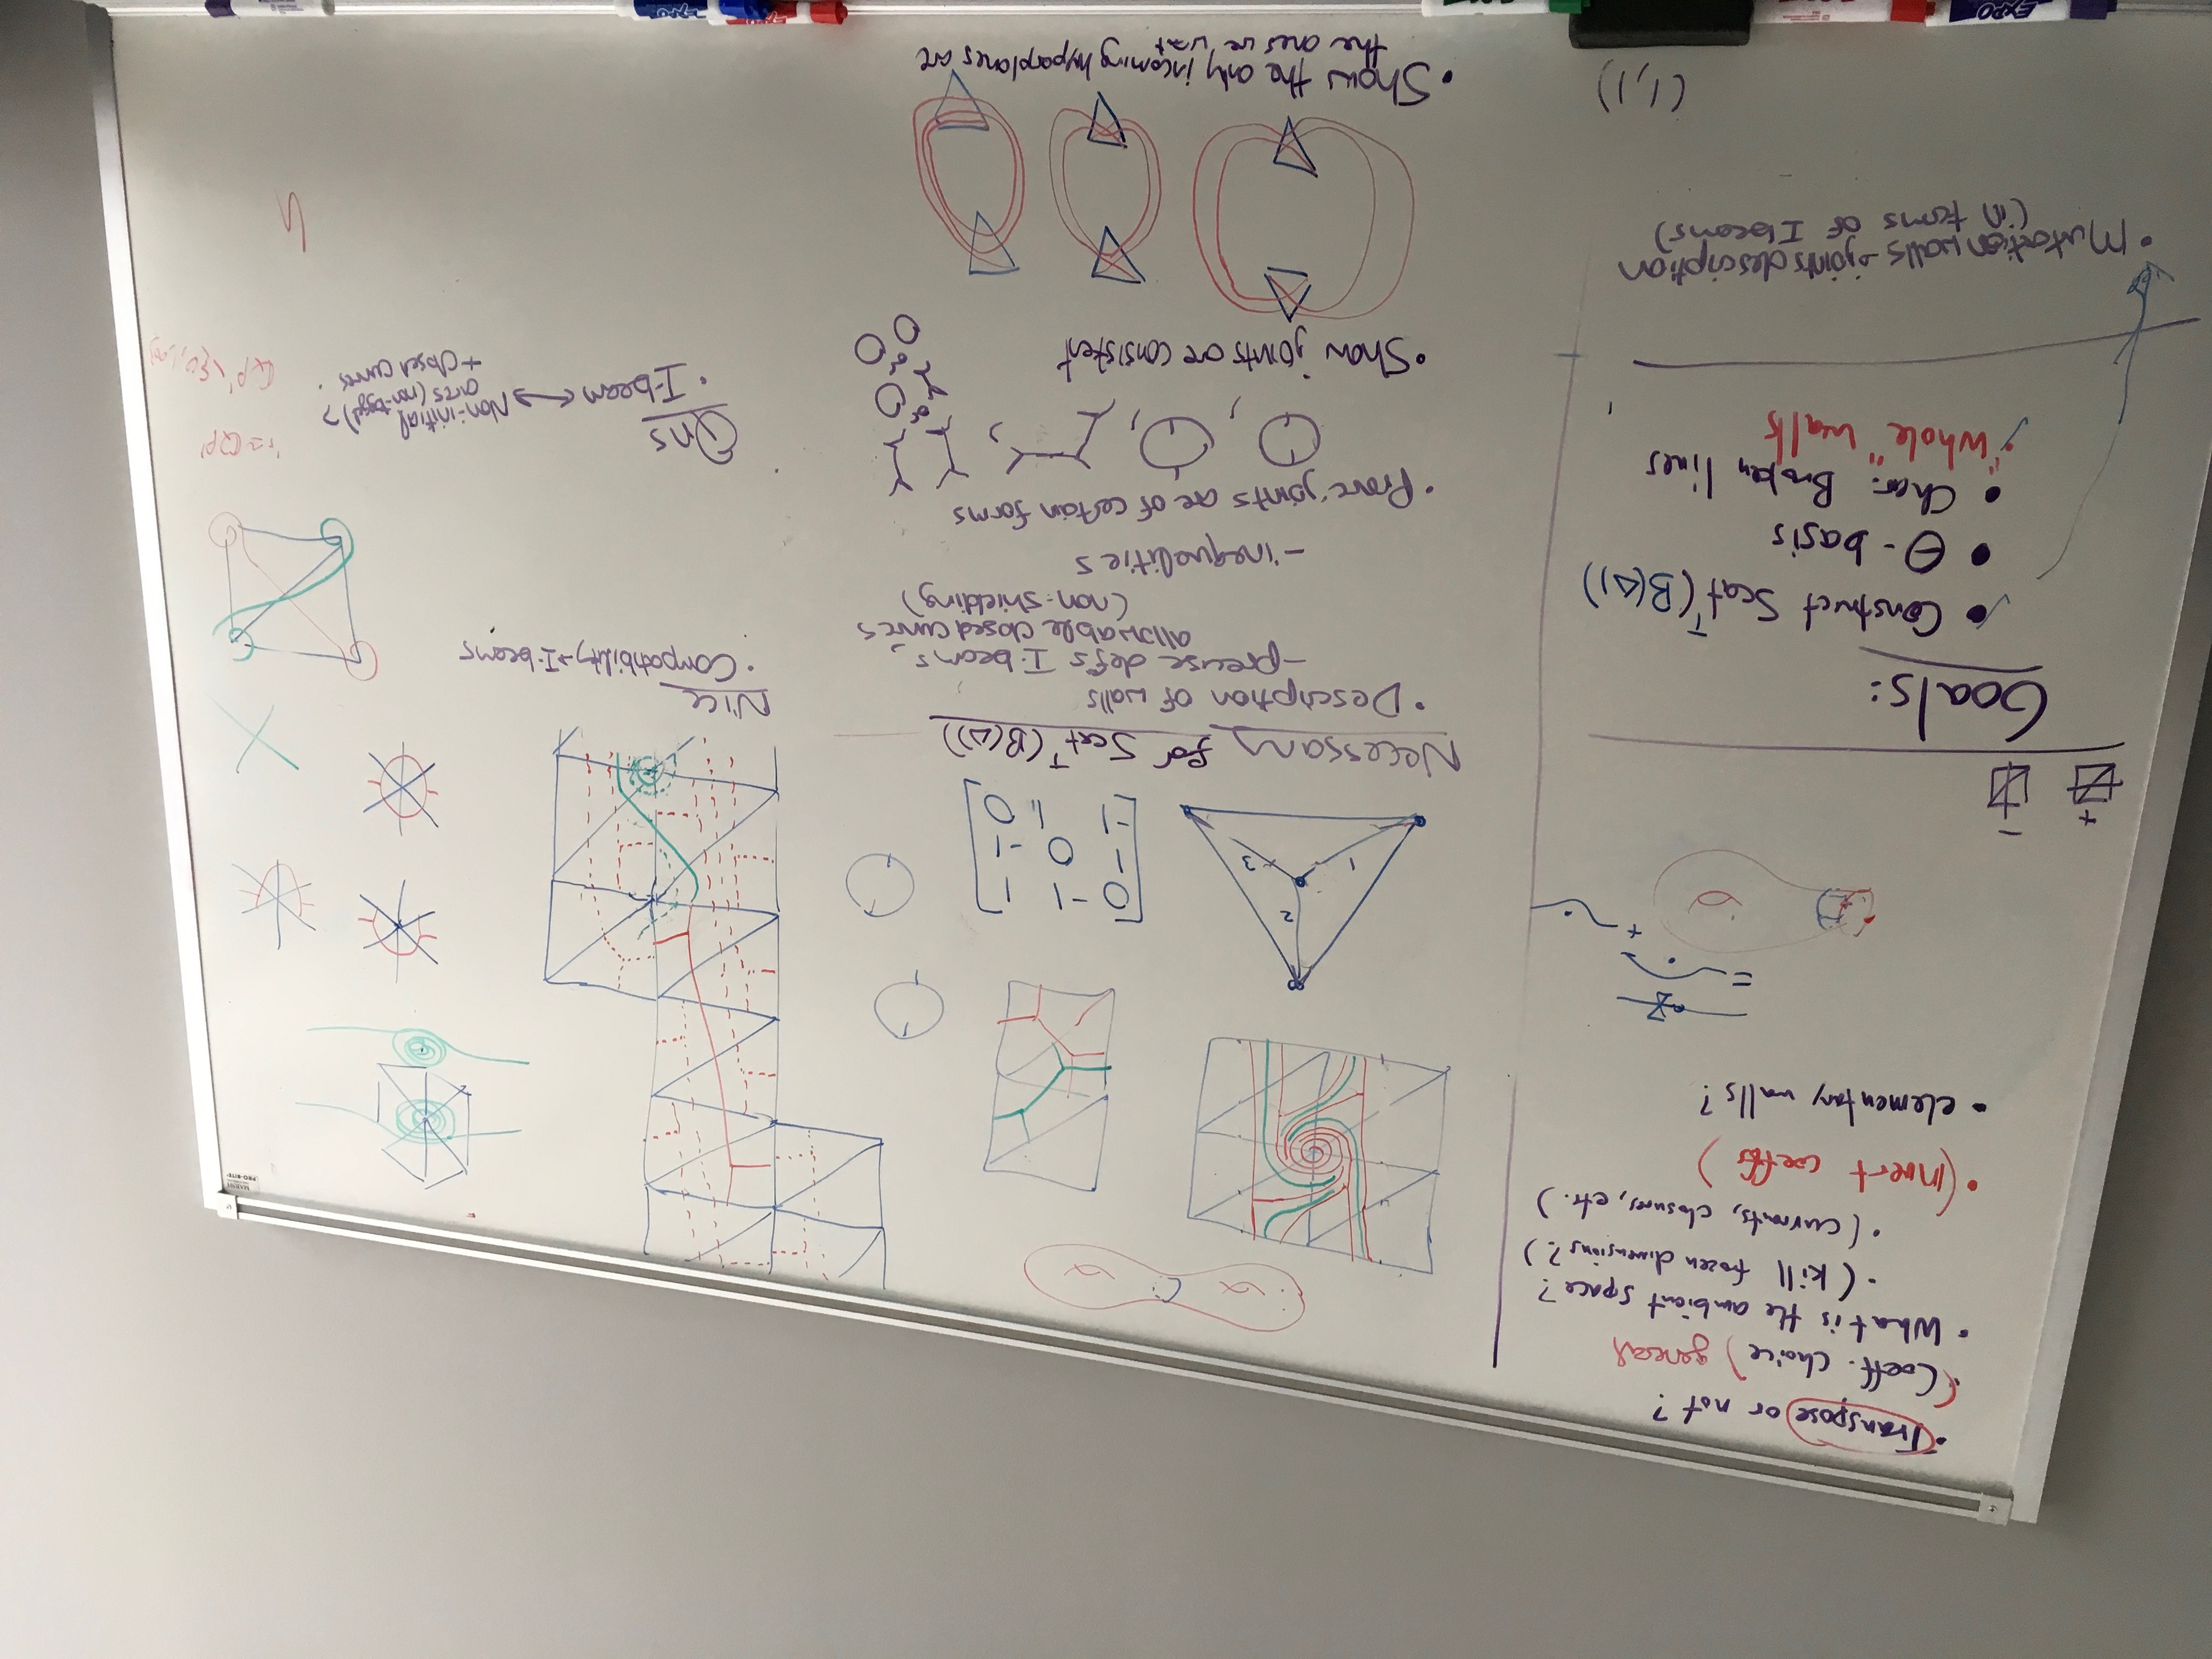 • Transpose or not?
• (Coeff. choice) general
• What is the ambient space?
• (kill frozen dimensions?)
• (currents, closures, etc.)
• (invert coeffs)
• elementary walls?
=
+
+ −
Goals:
• Construct Scatᵀ(B(Δ))
• Θ-basis
• Char. Broken lines
• "whole" walls
• Mutation walls → joints description
(in terms of I beams)
(1,1)
1 2 3
0 -1 1
1 0 -1
-1 1 0
Necessary for Scatᵀ(B(Δ))
• Description of walls
- precise def's I-beams,
allowable closed curves
(non-shielding)
- inequalities
• Prove joints are of certain forms
, , ,
or
or
• Show joints are consistent
• Show the only incoming hyperplanes are
the ones we want
Nice
• Compatibility → I-beams
Qns
• I-beam ↔ Non-initial
arcs (non-tagged)?
+ closed curves
QP'
EXPO
EXPO
EXPO
PRO-RITE